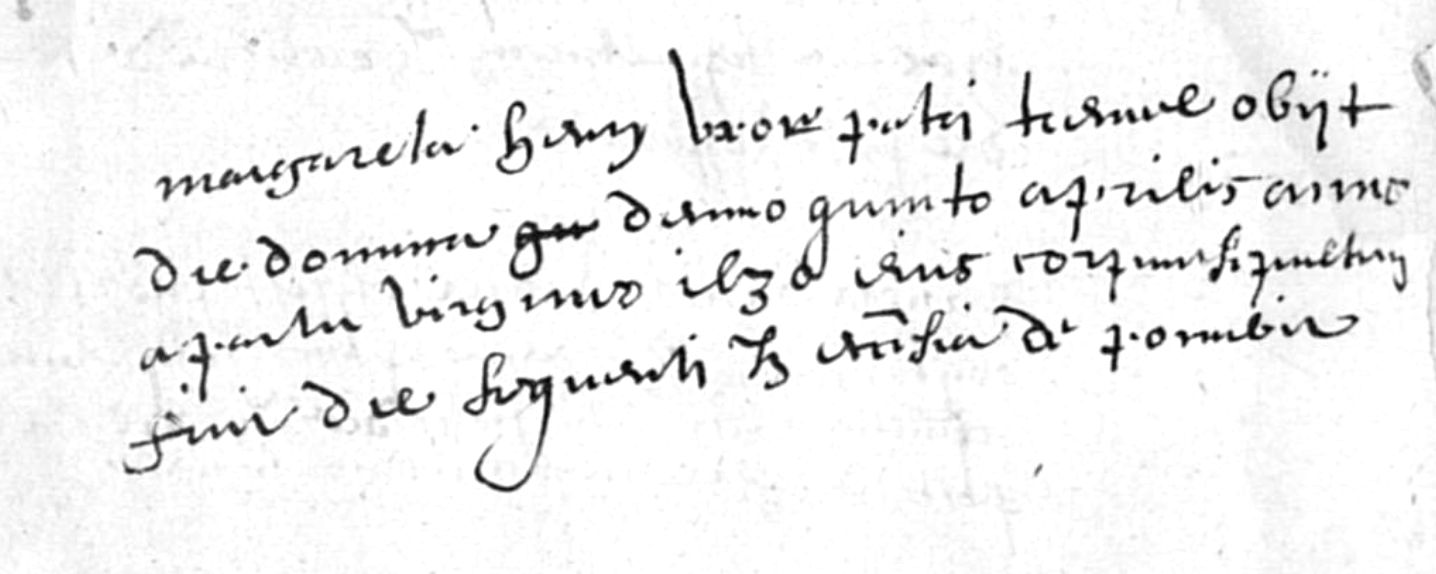 margareta hany vxor petri tienne obijt
die dominica decimo quinto aprilis anno
a partu virginis 1630 eius corpus sepultum
fuit die sequenti in ecclesia de